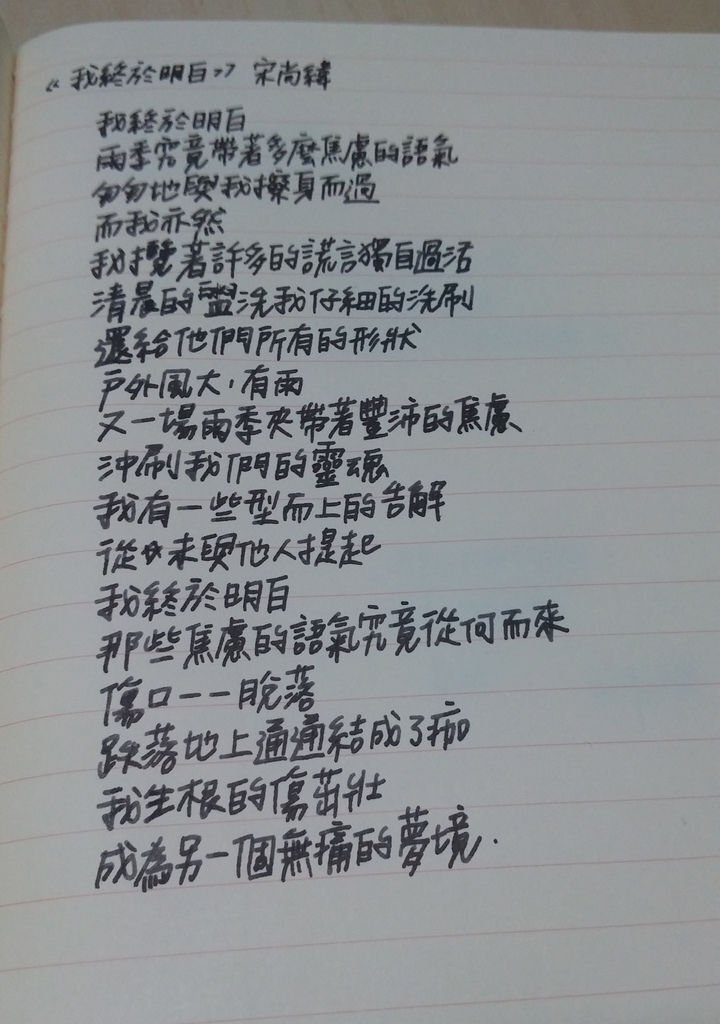 《我終於明白》 宋尚緯
我終於明白
雨季究竟帶著多麼焦慮的語氣
匆匆地與我擦身而過
而我亦然
我攬著許多的謊言獨自過活
清晨的盥洗我仔細的洗刷
還給他們所有的形狀
戶外風大，有雨
又一場雨季夾帶著豐沛的焦慮
沖刷我們的靈魂
我有一些型而上的告解
從未與他人提起
我終於明白
那些焦慮的語氣究竟從何而來
傷口一一脫落
跌落地上通通結成了痂
我生根的傷茁壯
成為另一個無痛的夢境.